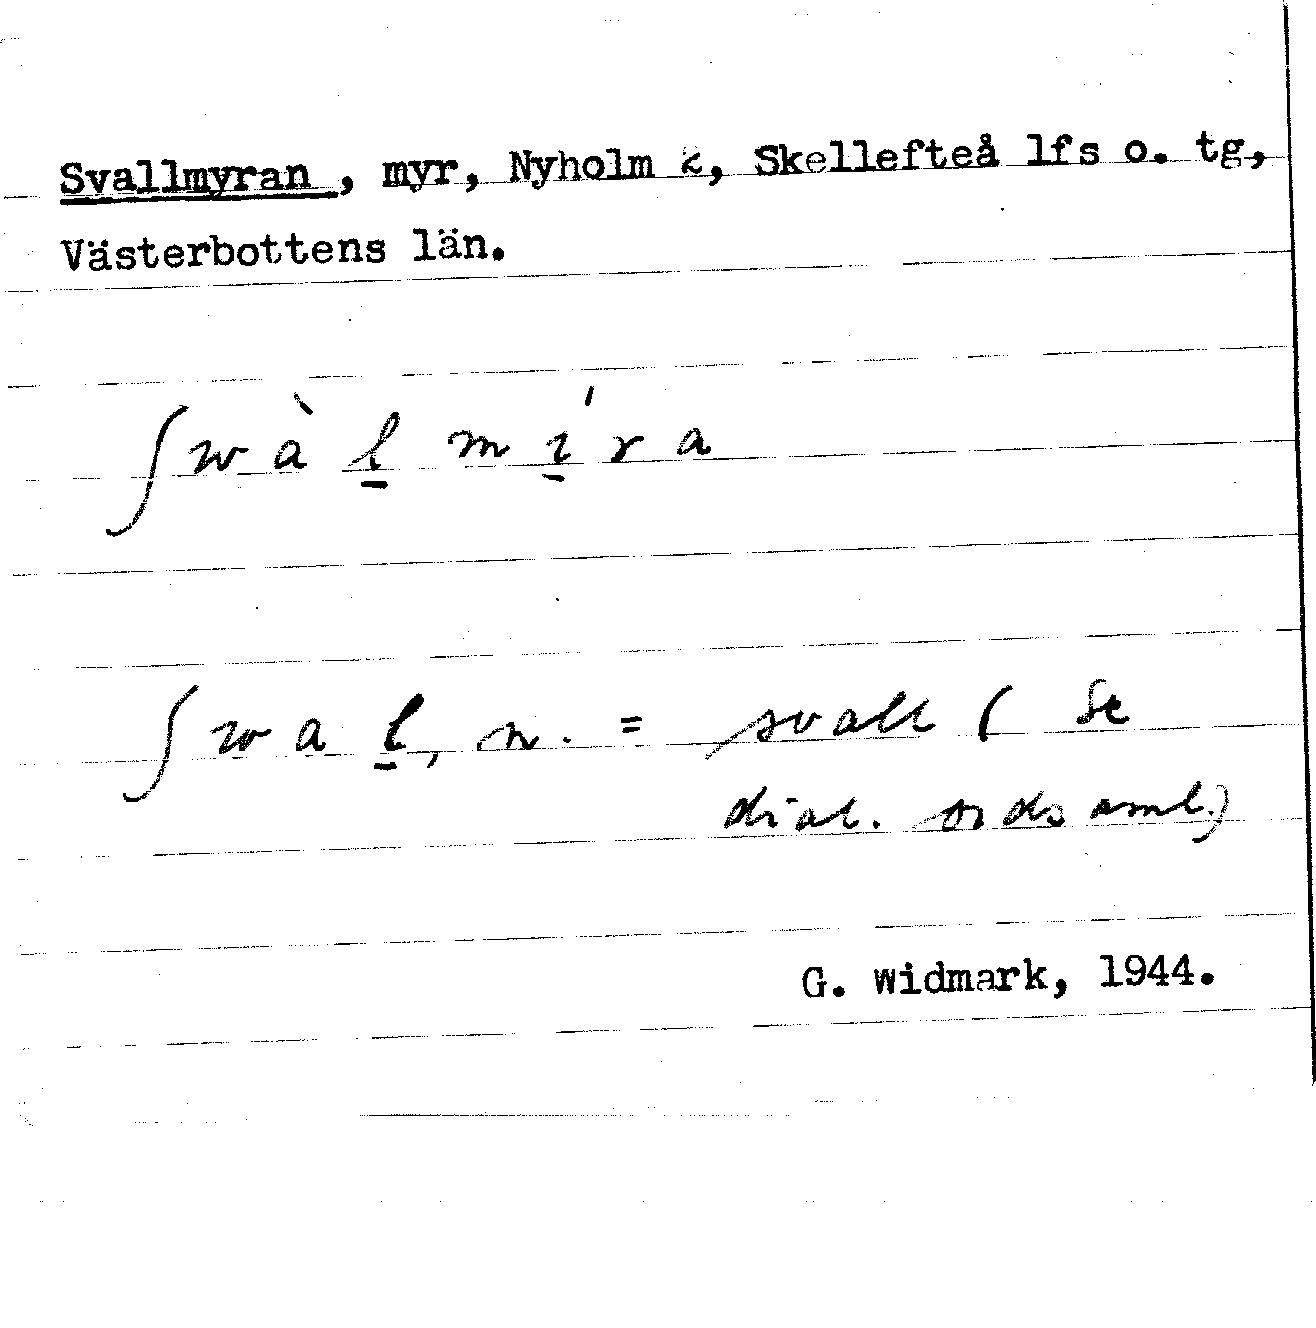 Svallmyran, myr, Nyholm 2, Skellefteå lfs o. tg,
Västerbottens län.
ʃwàl̲ mı̲́ra
ʃwal̲, n. = svall (Se
dial. ordsaml.)
G. Widmark, 1944.